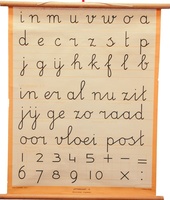 i n m u v w o a
d e c r z s t p
j g y h k f l b
in er al nu zit
jij ge zo raad
oor vloei post
1 2 3 4 5 + - =
6 7 8 9 10 × :